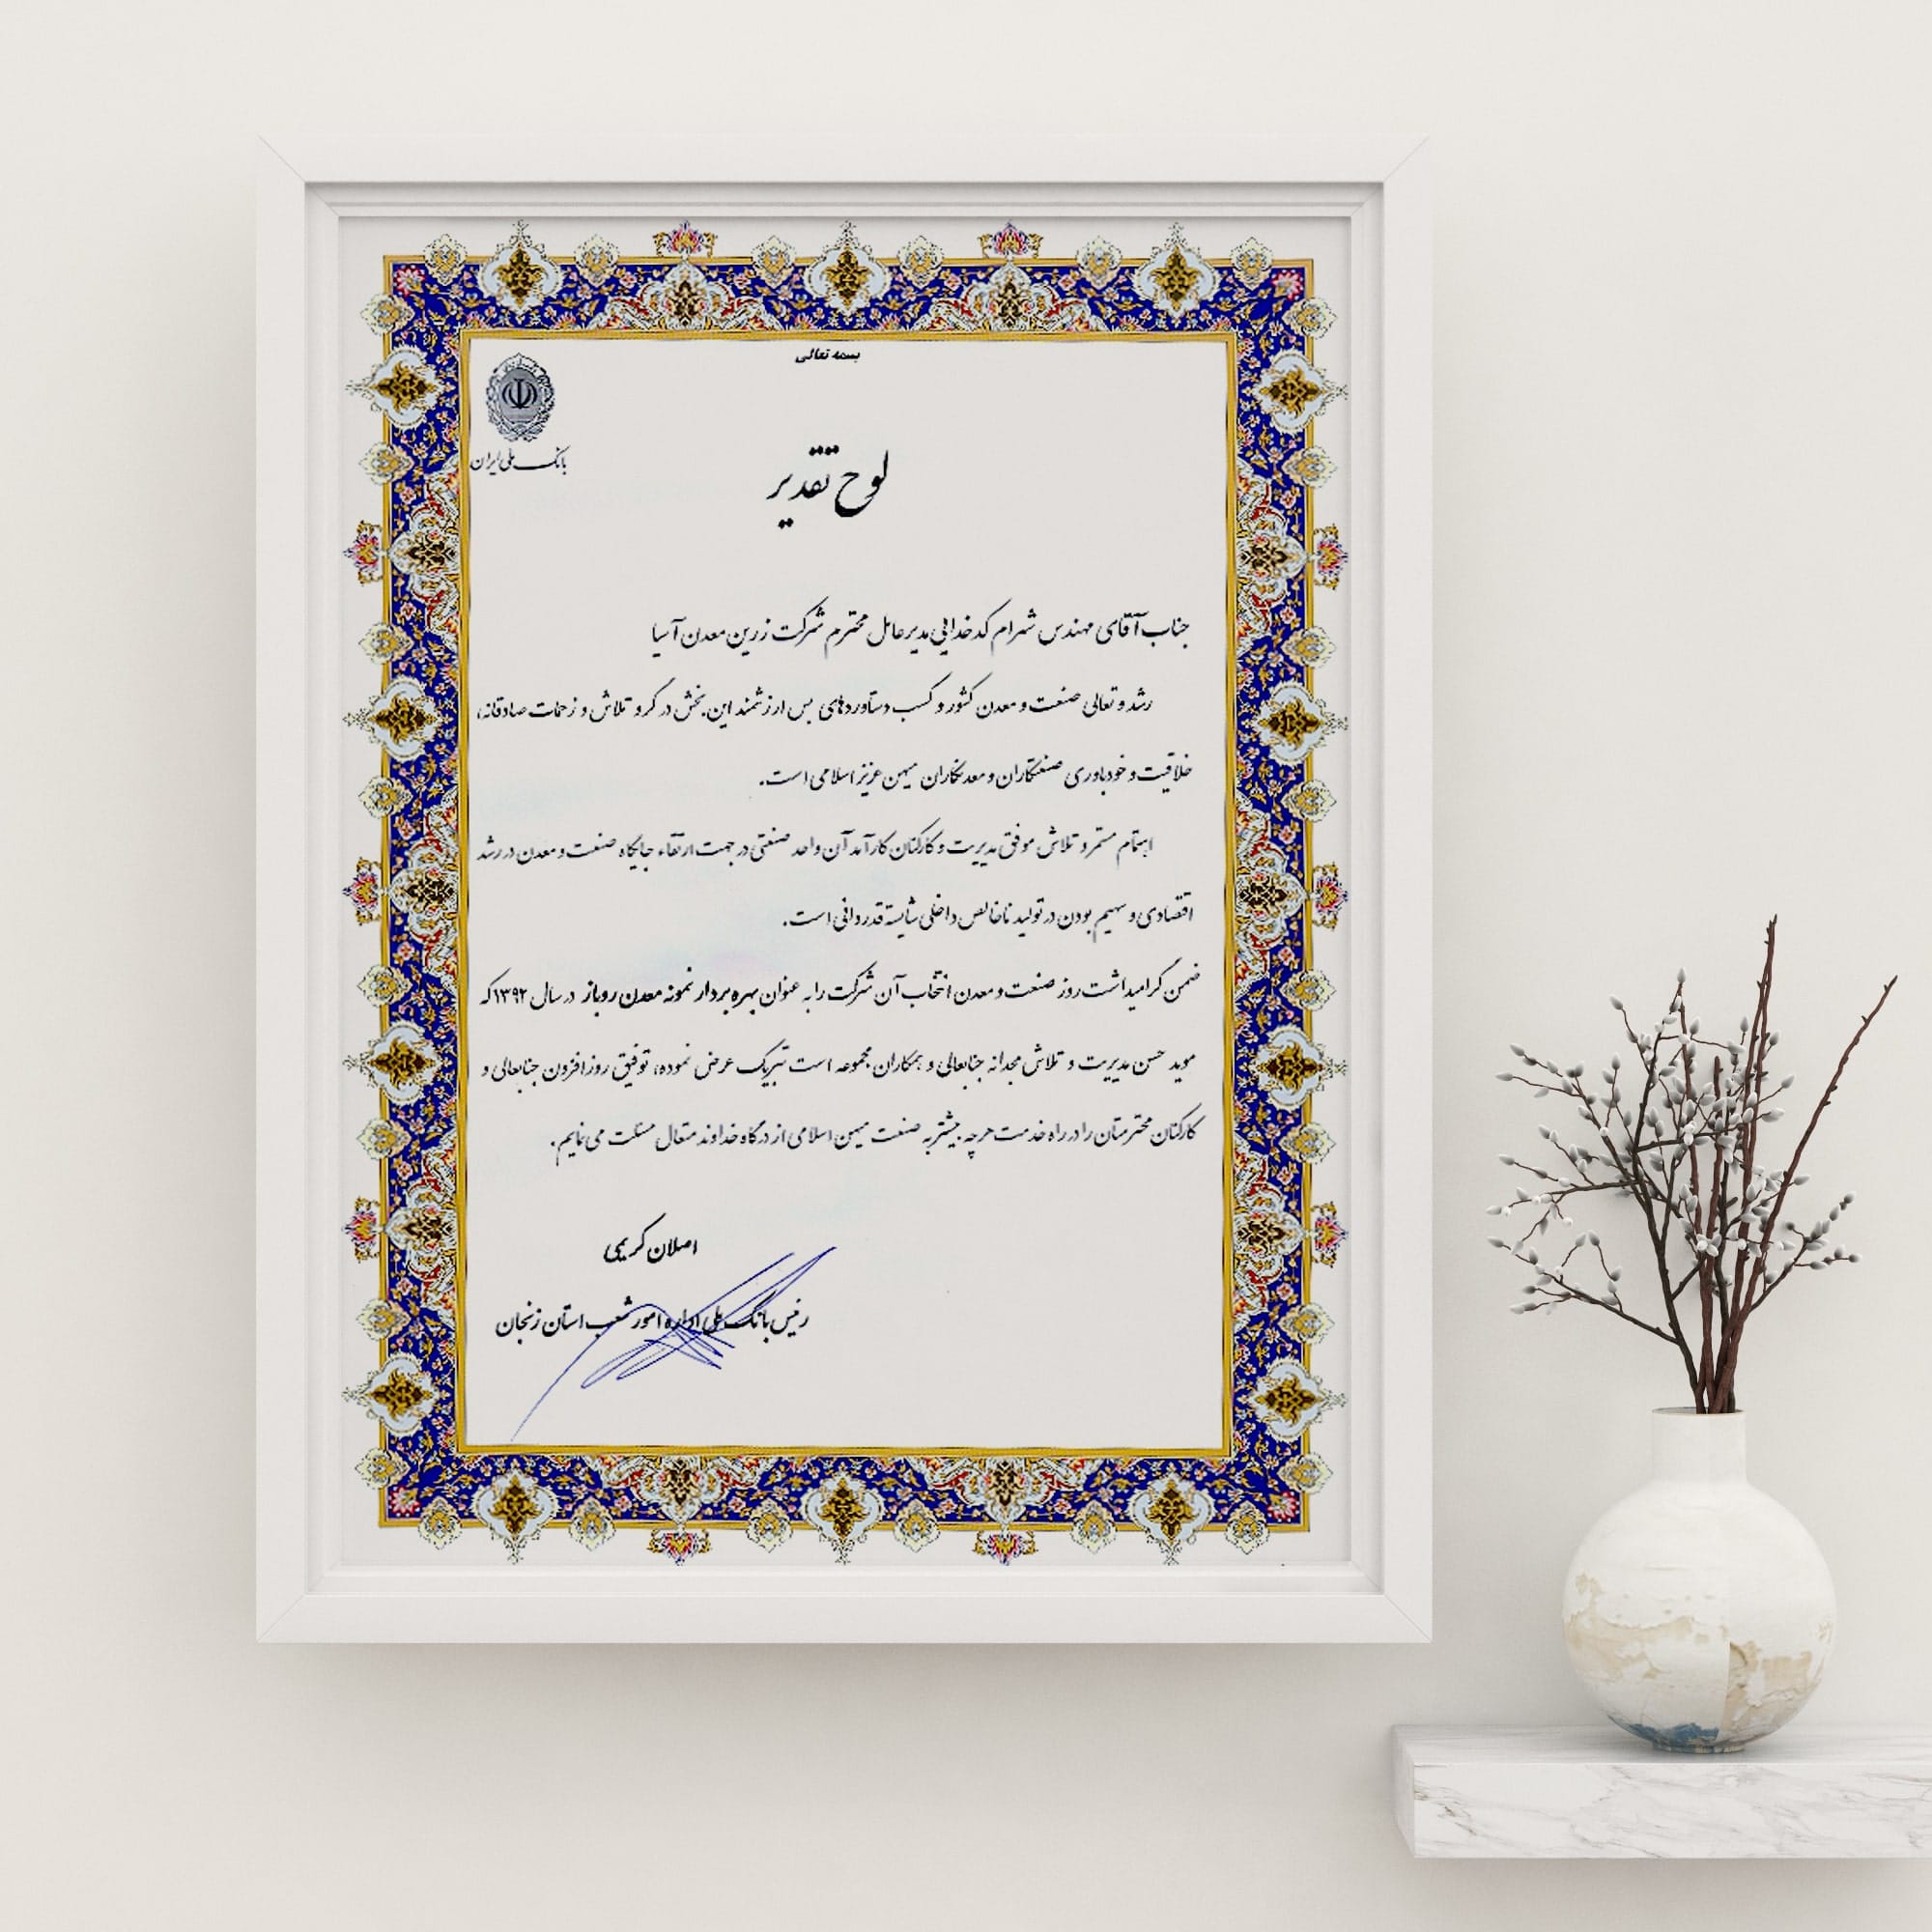 بسمه تعالی
بانک ملی ایران
لوح تقدیر
جناب آقای مهندس شهرام کدخدایی مدیرعامل محترم شرکت زرین معدن آسیا
رشد و تعالی صنعت و معدن کشور و کسب دستاوردهای بس ارزشمند این بخش در گرو تلاش و زحمات صادقانه،
خلاقیت و خودباوری صنعتکاران و معدنکاران میهن عزیز اسلامی است.
اهتمام مستمر و تلاش موفق مدیریت و کارکنان کارآمد آن واحد صنعتی در جهت ارتقاء جایگاه صنعت و معدن در رشد
اقتصادی و سهیم بودن در تولید ناخالص داخلی شایسته قدردانی است.
ضمن گرامیداشت روز صنعت و معدن انتخاب آن شرکت را به عنوان بهره بردار نمونه معدن روباز در سال ۱۳۹۲ که
موید حسن مدیریت و تلاش مجدانه جنابعالی و همکاران مجموعه است تبریک عرض نموده، توفیق روزافزون جنابعالی و
کارکنان محترمتان را در راه خدمت هرچه بیشتر به صنعت میهن اسلامی از درگاه خداوند متعال مسئلت می نمایم.
اصلان کریمی
رئیس بانک ملی اداره امور شعب استان زنجان